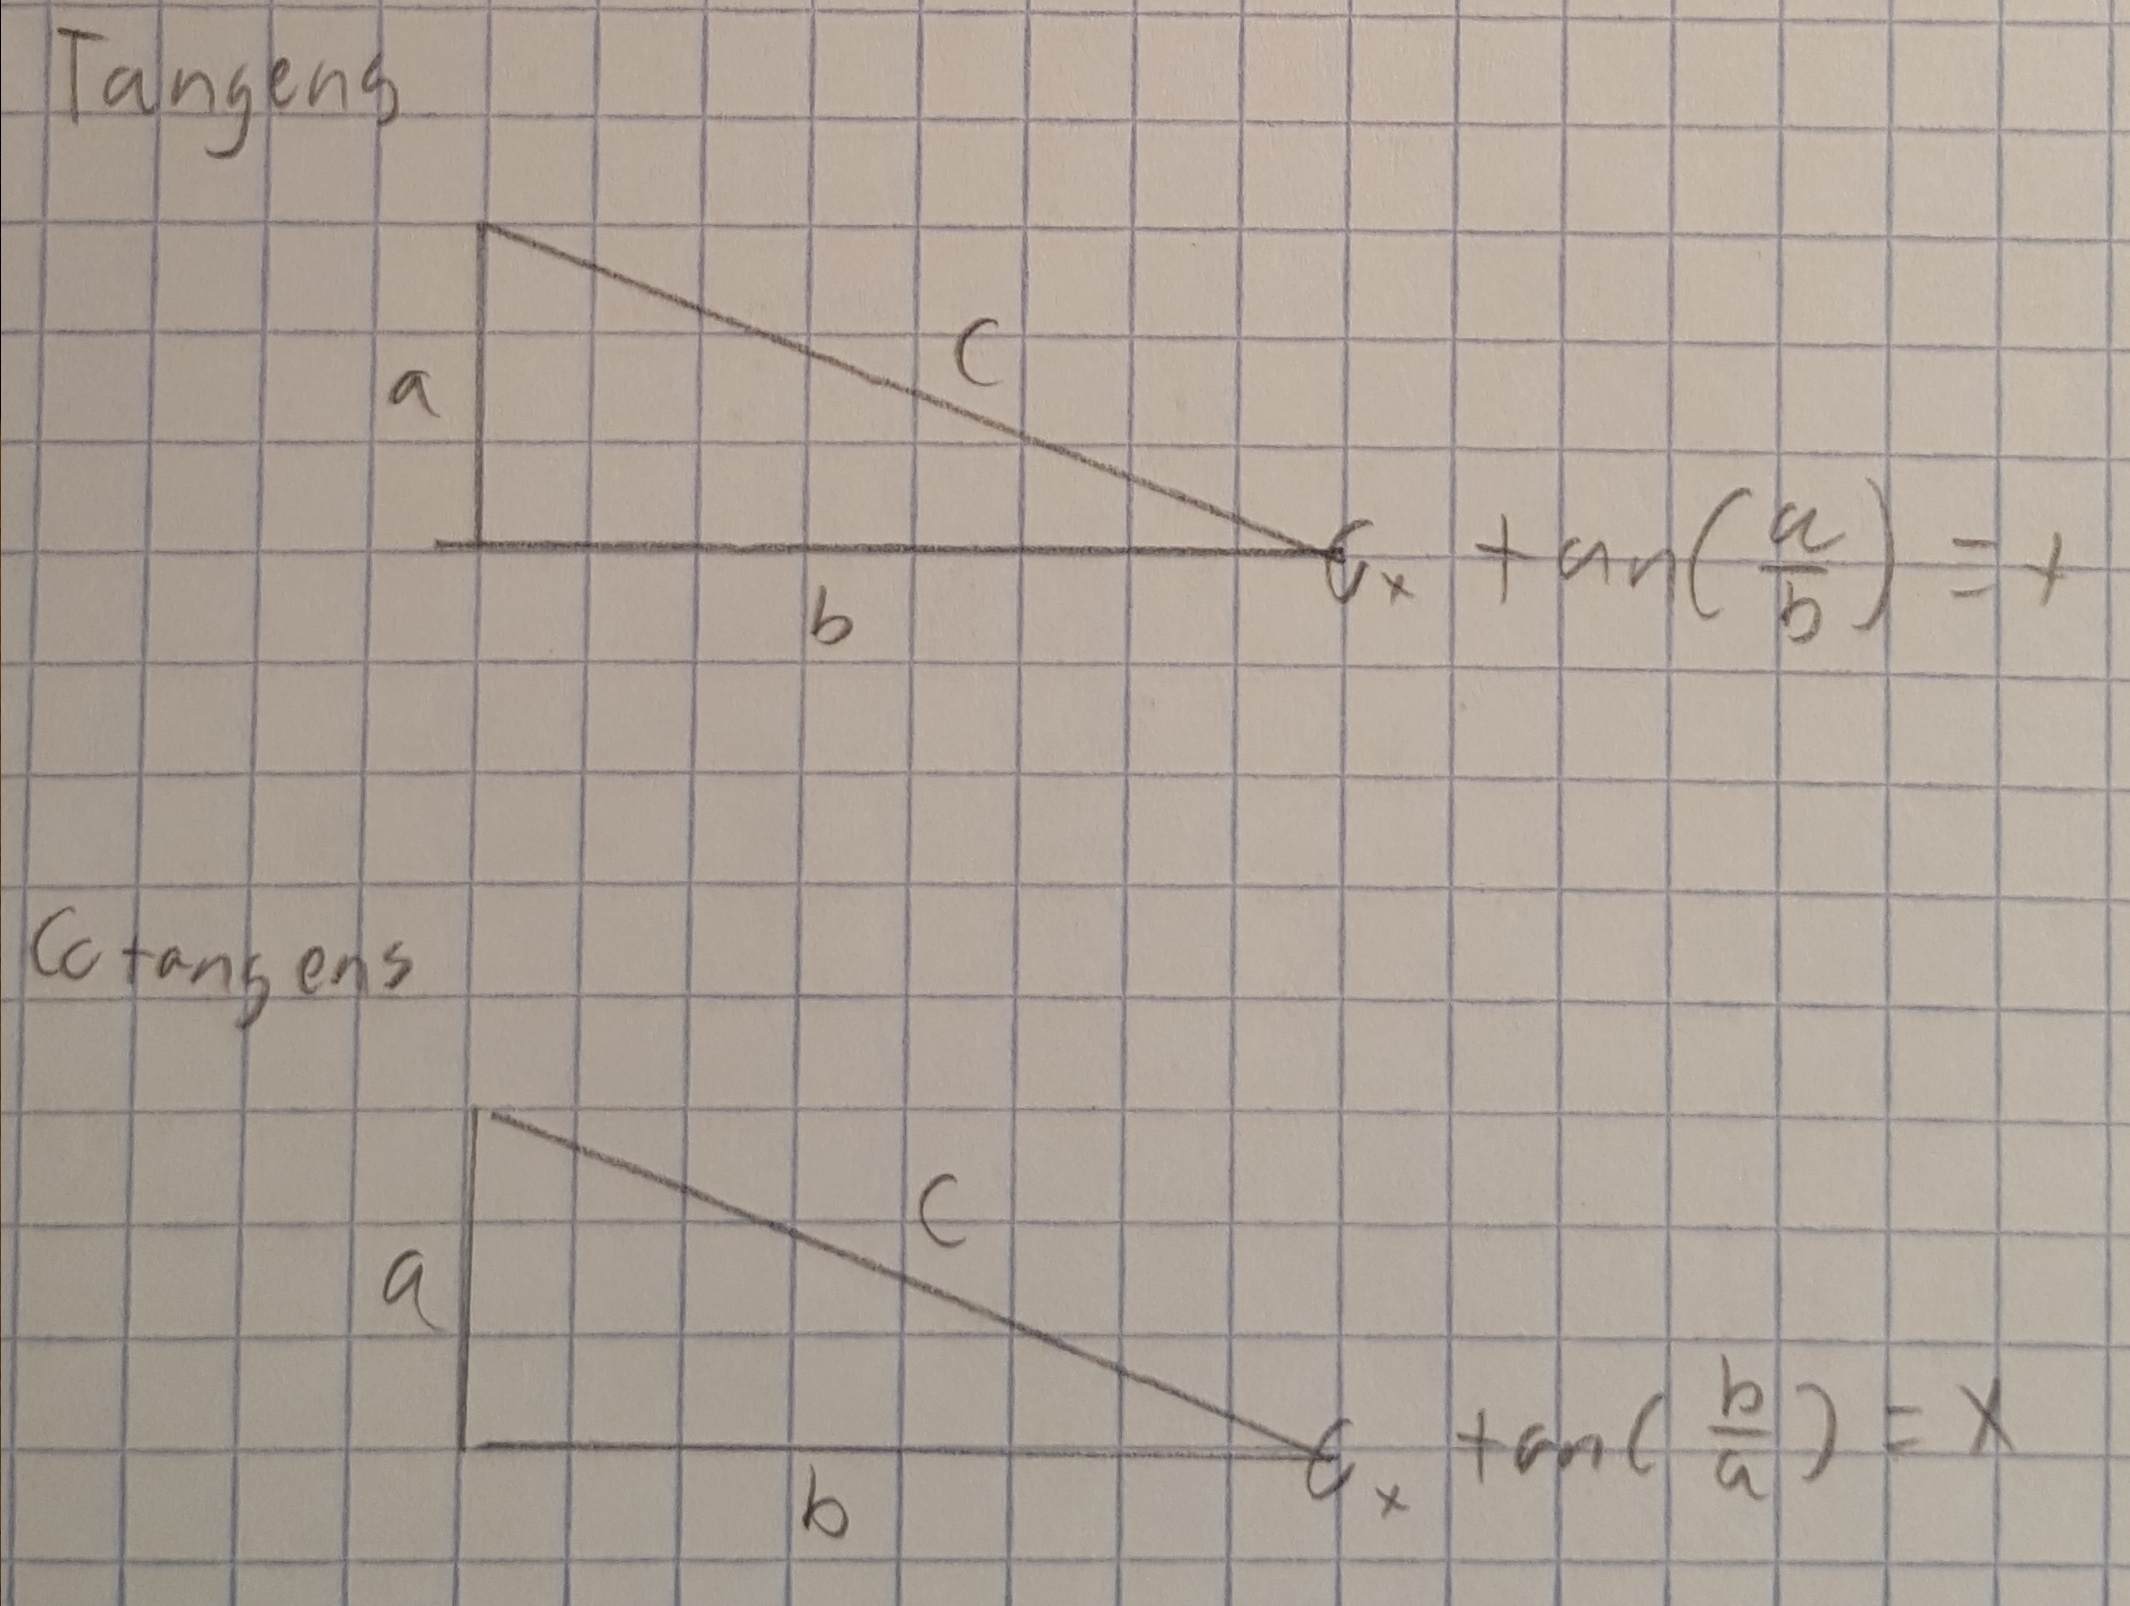 Tangens
a
C
b
x tan(a/b) = x
Cotangens
a
C
b
x tan(b/a) = x